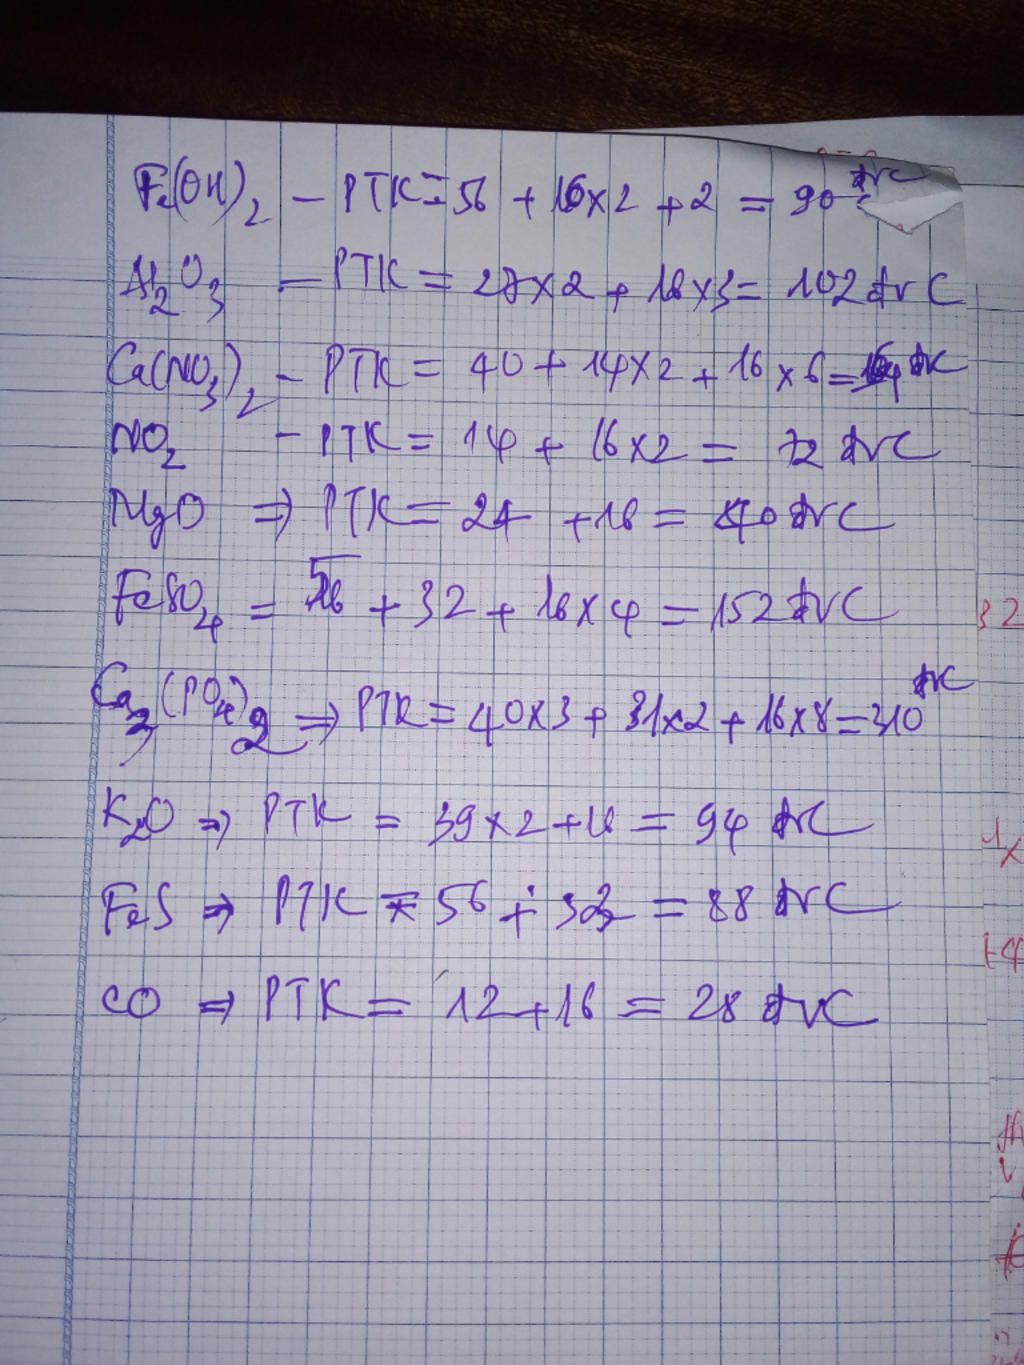 Fe(OH)₂ - PTK = 56 + 16x2 + 2 = 90 đvC
Al₂O₃ - PTK = 27x2 + 16x3 = 102 đvC
Ca(NO₃)₂ - PTK = 40 + 14x2 + 16x6 = 164 đvC
NO₂ - PTK = 14 + 16x2 = 72 đvC
MgO => PTK = 24 + 16 = 40 đvC
FeSO₄ = 56 + 32 + 16x4 = 152 đvC
Ca₃(PO₄)₂ => PTK = 40x3 + 31x2 + 16x8 = 310 đvC
K₂O => PTK = 39x2 + 16 = 94 đvC
FeS => PTK = 56 + 32 = 88 đvC
CO => PTK = 12 + 16 = 28 đvC
32
1x
+4